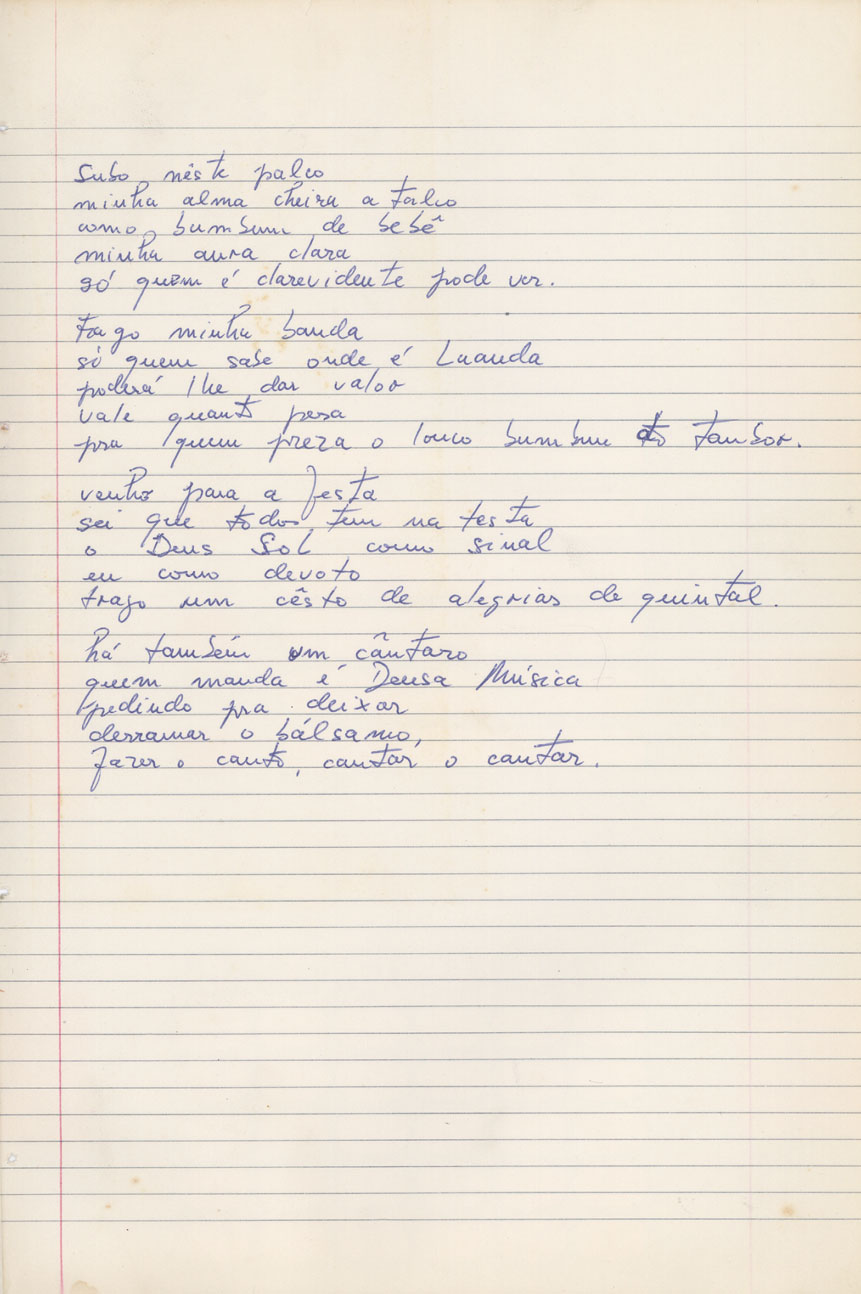 Subo nêste palco
minha alma cheira a talco
como bumbum de bebê
minha aura clara
só quem é clarevidente pode ver.
Fago minha banda
só quem sabe onde é Luanda
poderá lhe dar valor
vale quanto pesa
pra quem preza o louco bumbum do tambor.
venho para a festa
sei que todos tem na testa
o Deus Sol como sinal
eu como devoto
trago um cêsto de alegrias de quintal.
há também um cântaro
quem manda é Deusa Música
pedindo pra deixar
derramar o bálsamo,
fazer o canto, cantar o cantar.